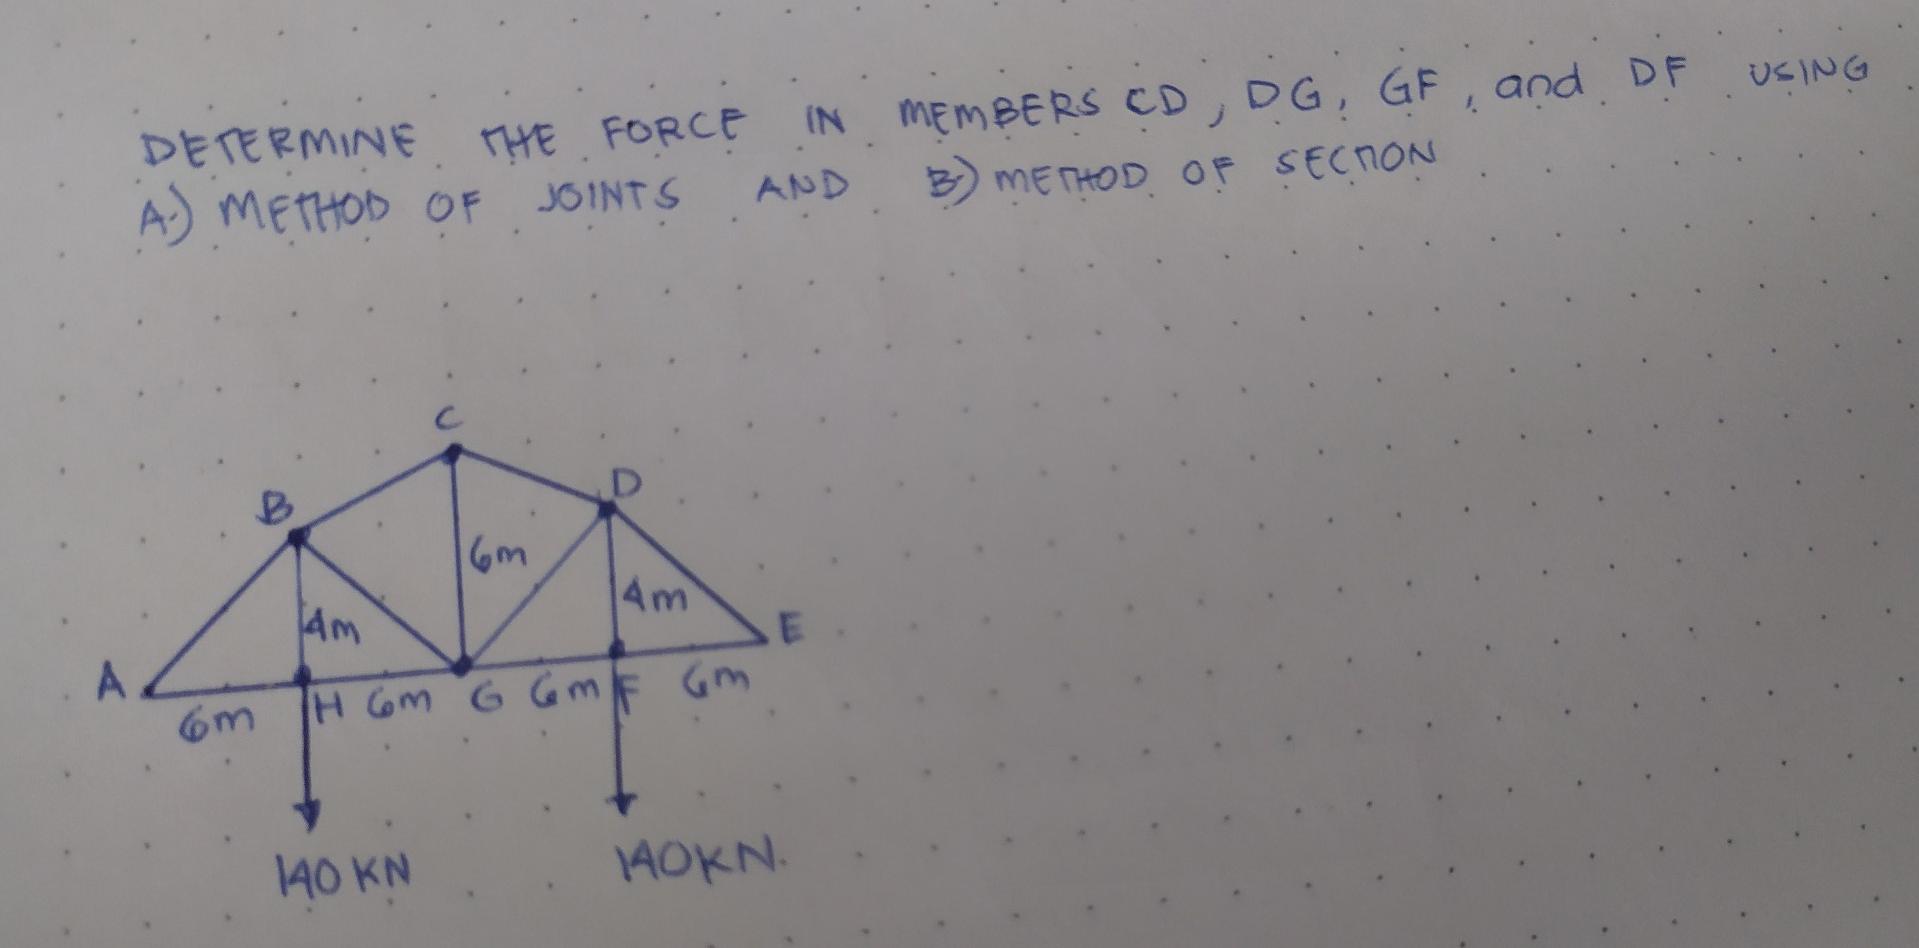 DETERMINE THE FORCE IN MEMBERS CD, DG, GF, and DF USING
A.) METHOD OF JOINTS AND B.) METHOD OF SECTION
C
B
D
6m
4m
4m
A
E
6m
H
6m
G
6m
F
6m
140 KN
140KN.